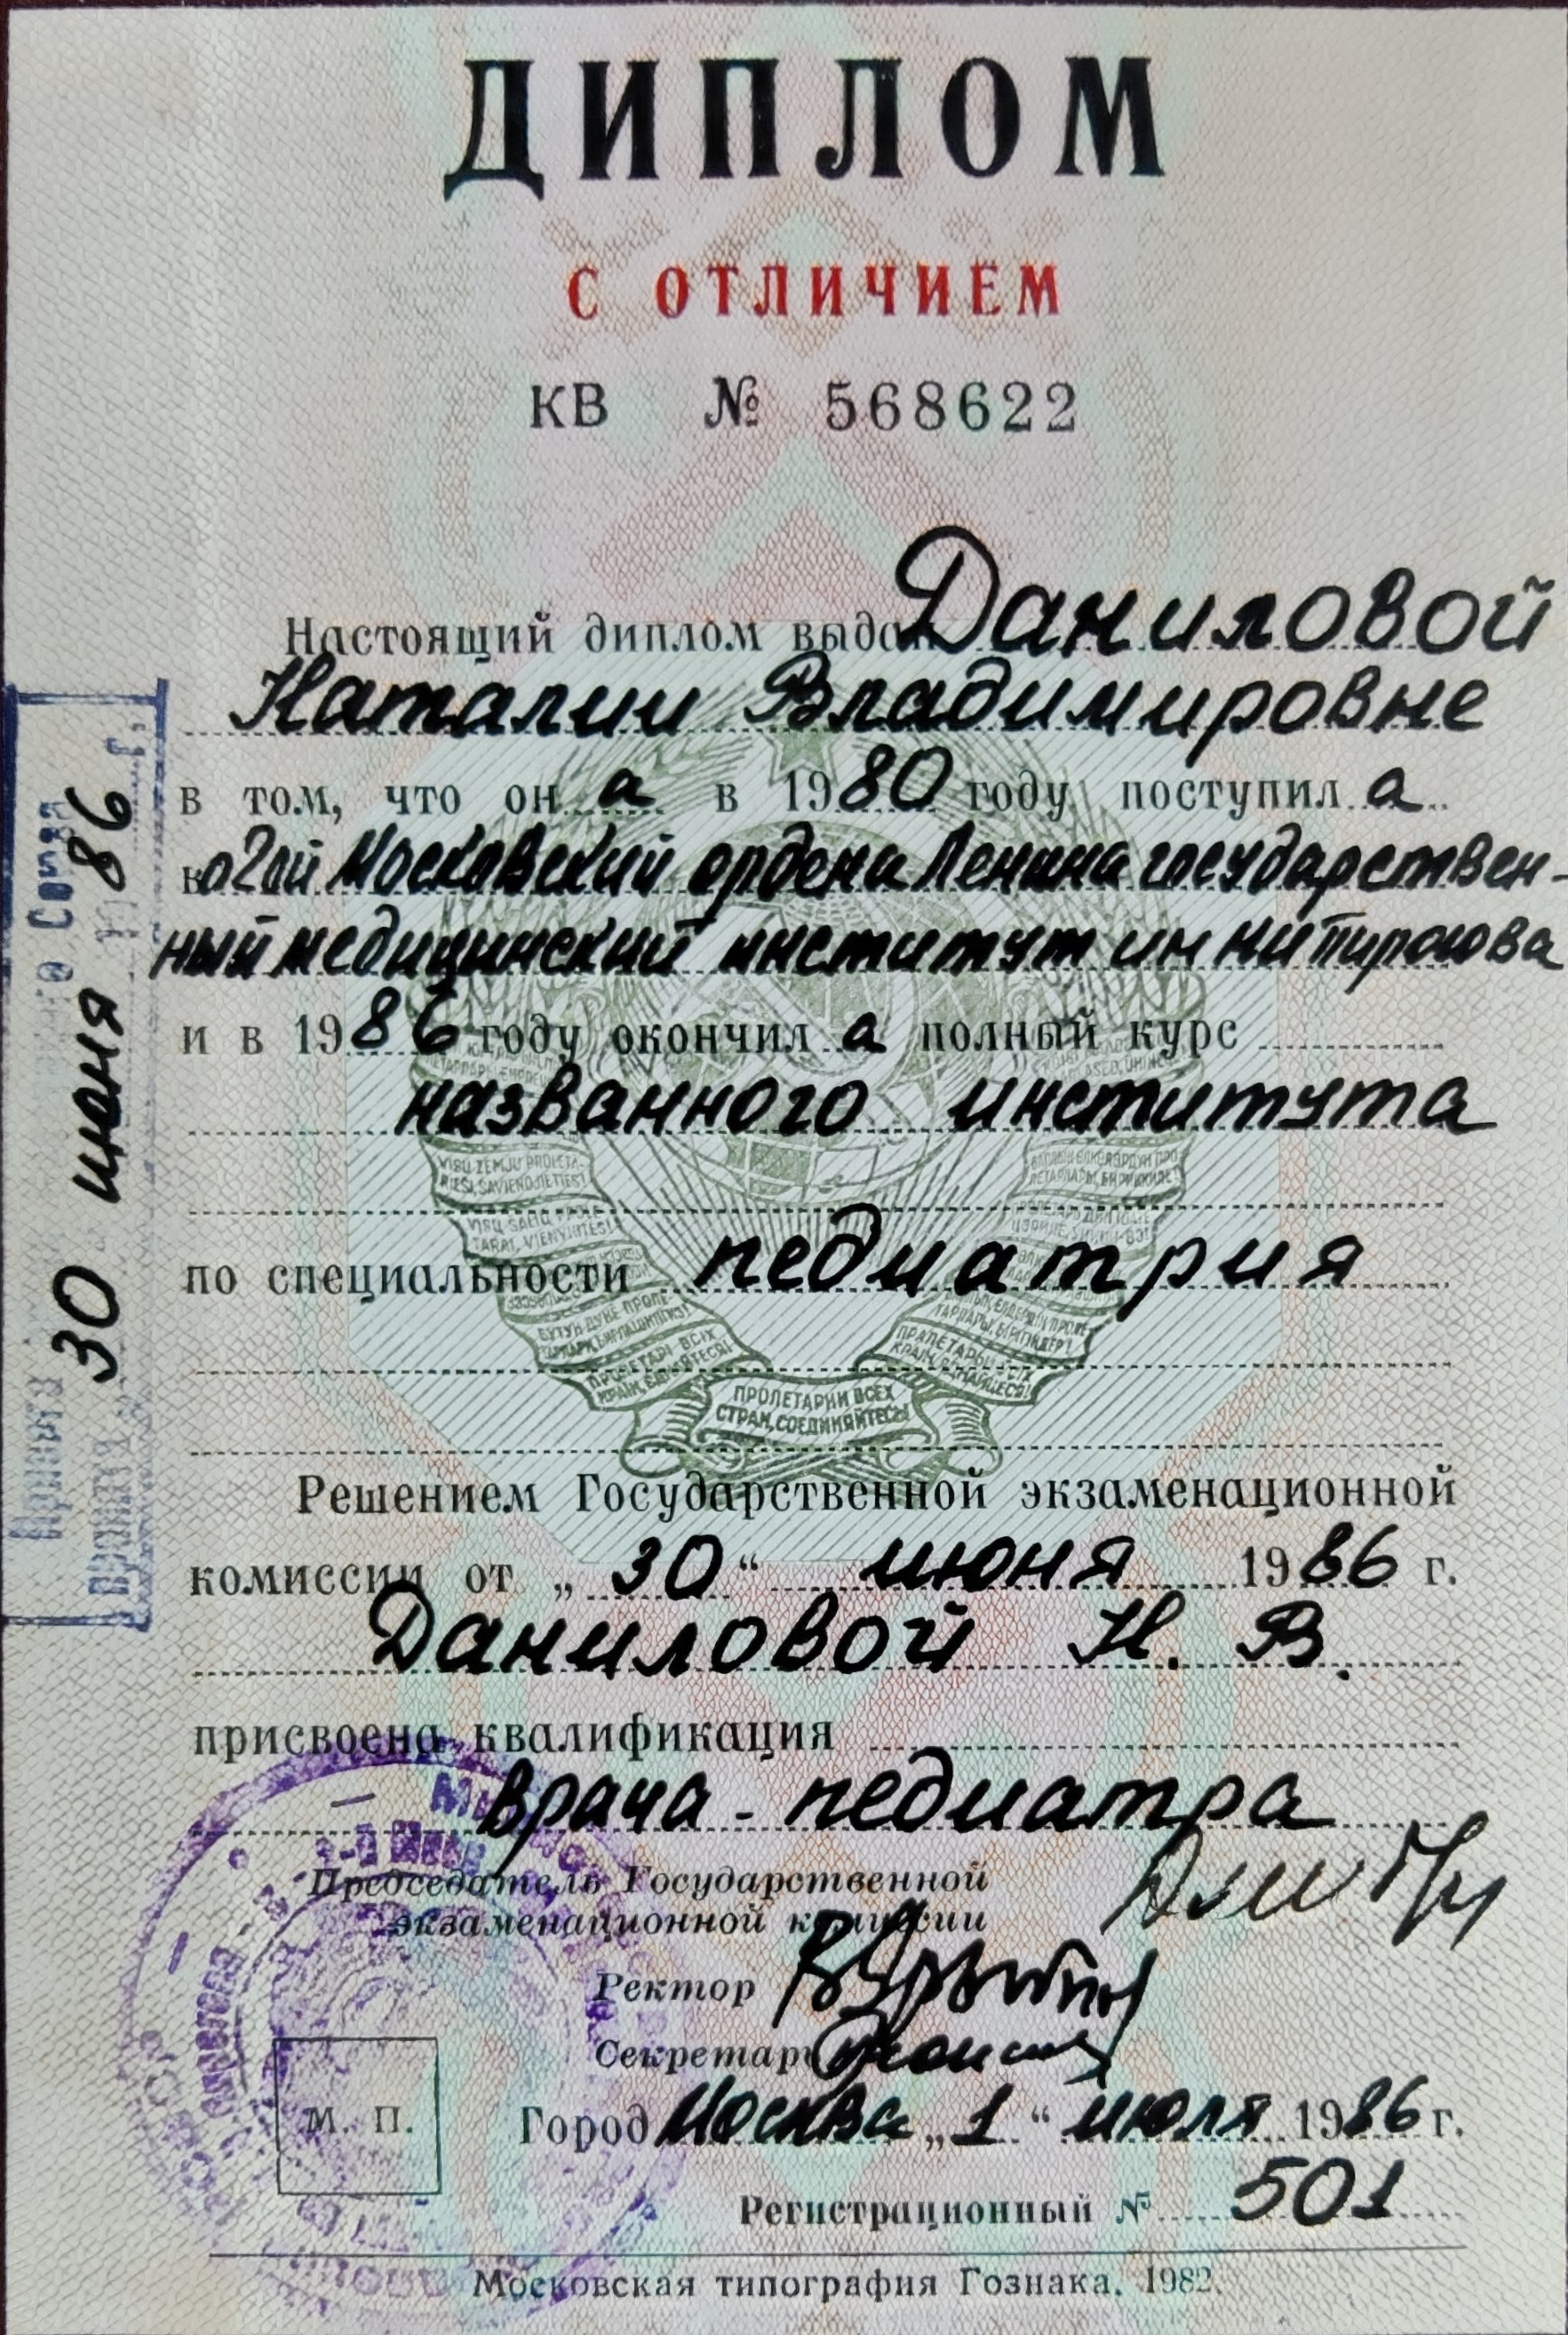 ДИПЛОМ
С ОТЛИЧИЕМ
КВ № 568622
Настоящий диплом выдан Даниловой
Наталии Владимировне
в том, что он а в 1980 году поступил а
во 2ой Московский ордена Ленина государствен-
ный медицинский институт им Н И Пирогова
и в 1986 году окончил а полный курс
названного института
по специальности педиатрия
Решением Государственной экзаменационной
комиссии от „30“ июня 1986 г.
Даниловой Н. В.
присвоена квалификация
врача-педиатра
Председатель Государственной
экзаменационной комиссии
Ректор
Секретарь
М. П.
Город Москва „1“ июля 1986 г.
Регистрационный № 501
Московская типография Гознака. 1982.
30 июня 86 г.
VISU ZEMJU PROLETA-
RIEŠI, SAVIENOJIETIES!
ПРОЛЕТАРИИ ВСЕХ
СТРАН, СОЕДИНЯЙТЕСЬ!